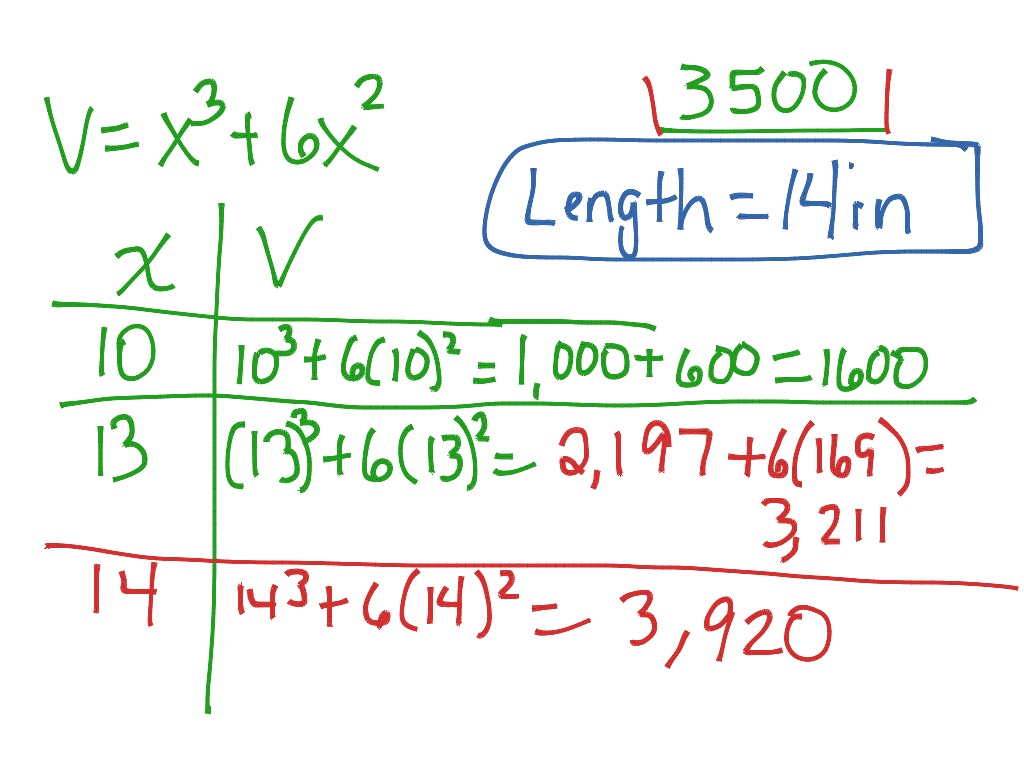 V = x³ + 6x²
3500
Length = 14 in
x V
10 10³ + 6(10)² = 1,000 + 600 = 1600
13 (13)³ + 6(13)² = 2,197 + 6(169) =
3,211
14 14³ + 6(14)² = 3,920